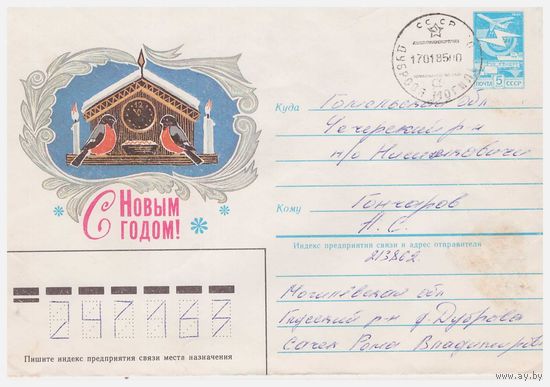 СССР
17 01 85
ПОЧТА 5К СССР
С НОВЫМ
ГОДОМ!
Куда Гомельская обл
Чечерский р-н
п/о Нисимковичи
Кому Гончаров
Н. С.
Индекс предприятия связи и адрес отправителя
213862
Могилёвская обл
Глусский р-н д. Дуброва
Рома Владимиров
247163
Пишите индекс предприятия связи места назначения
www.ay.by